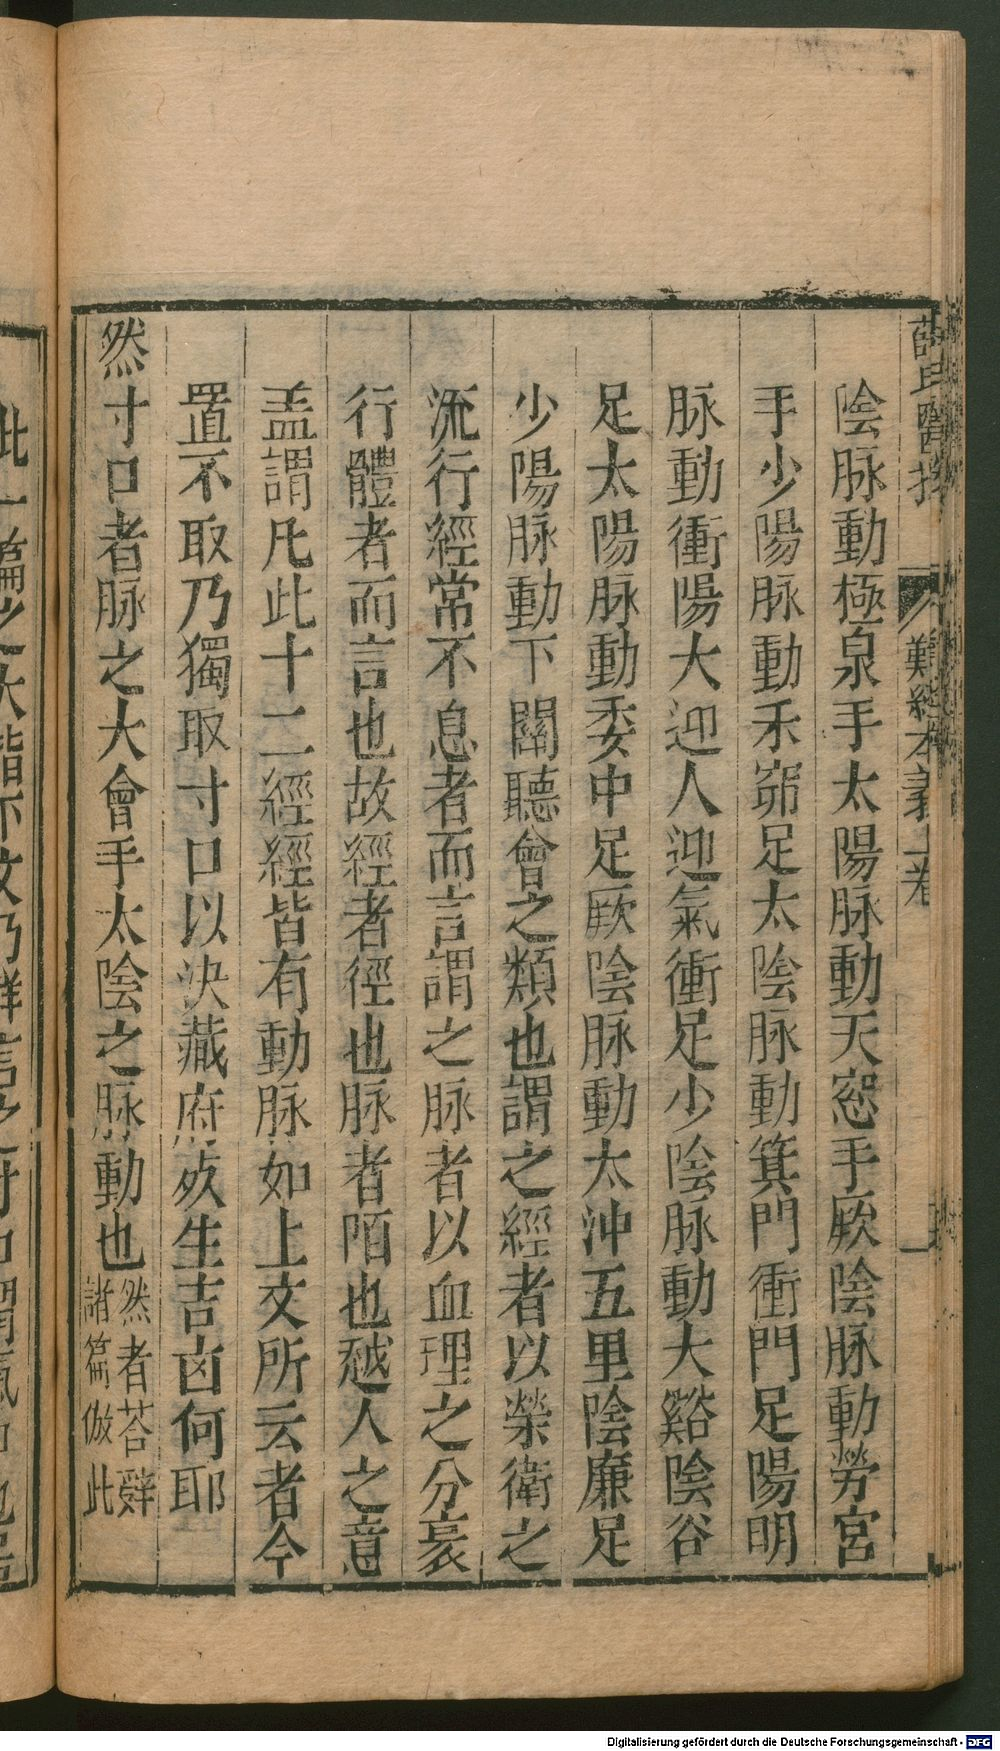 陰脉動極泉手太陽脉動天窓手厥陰脉動勞宮
手少陽脉動禾窌足太陰脉動箕門衝門足陽明
脉動衝陽大迎人迎氣衝足少陰脉動大谿陰谷
足太陽脉動委中足厥陰脉動太沖五里陰廉足
少陽脉動下關聽會之類也謂之經者以榮衛之
流行經常不息者而言謂之脉者以血理之分衺
行體者而言也故經者徑也脉者陌也越人之意
盖謂凡此十二經經皆有動脉如上文所云者今
置不取乃獨取寸口以決藏府㱙生吉凶何耶
然寸口者脉之大會手太陰之脉動也
然者荅辭
諸篇倣此
難經本義上卷
Digitalisierung gefördert durch die Deutsche Forschungsgemeinschaft - DFG